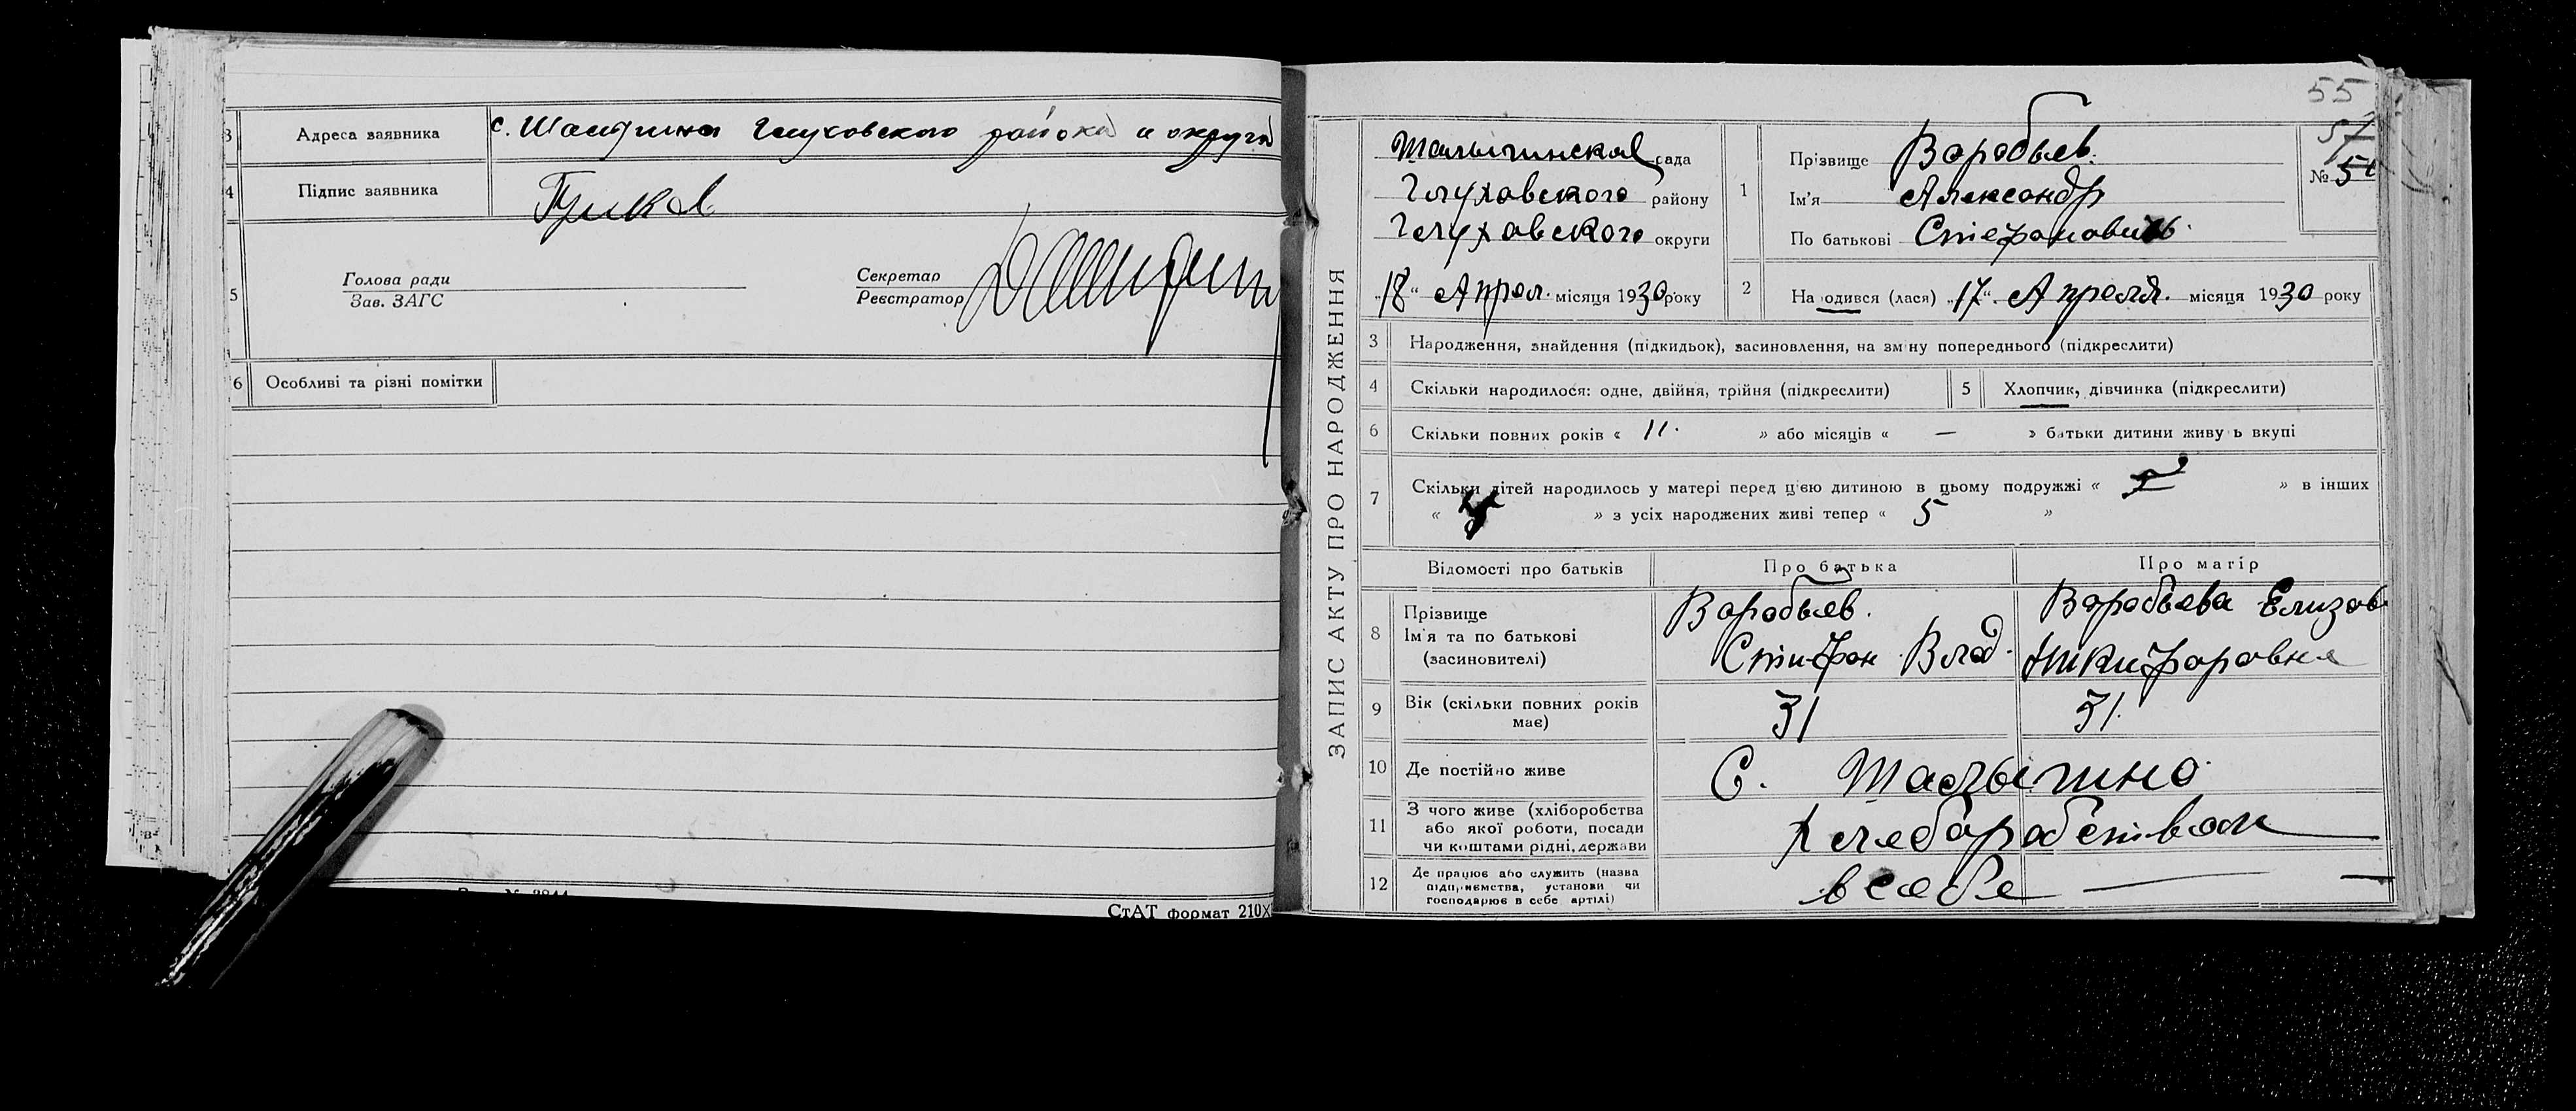 3 Адреса заявника с. Шалигина Глуховского района и округа
4 Підпис заявника
5 Голова ради
Зав. ЗАГС
Секретар
Реєстратор
6 Особливі та різні помітки
СтАТ формат 210Х
55
ЗАПИС АКТУ ПРО НАРОДЖЕННЯ
Шалыгинская рада
Глуховского району
Глуховского округи
„18“ Апрел. місяця 1930 року
1 Прізвище Воробьев.
Ім'я Александр
По батькові Стефанович.
№
2 На одився (лася) „17“ Апреля. місяця 1930 року
3 Народження, знайдення (підкидьок), засиновлення, на зміну попереднього (підкреслити)
4 Скільки народилося: одне, двійня, трійня (підкреслити)
5 Хлопчик, дівчинка (підкреслити)
6 Скільки повних років « 11. » або місяців « — » батьки дитини живу ь вкупі
7 Скільки дітей народилось у матері перед цією дитиною в цьому подружжі « » в інших
« » з усіх народжених живі тепер « 5 »
Відомості про батьків Про батька Про матір
8 Прізвище
Ім'я та по батькові
(засиновителі)
Воробьев.
Стифан Влад.
Воробьева Елизав
Никифоровна
9 Вік (скільки повних років
має)
31 31.
10 Де постійно живе С. Шалыгино
11 З чого живе (хліборобства
або якої роботи, посади
чи коштами рідні, держави
Хлеборобством
12 Де працює або служить (назва
підприємства, установи чи
господарює в себе артілі)
в себе —